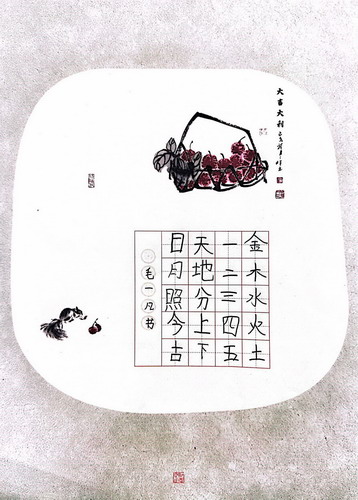 大吉大利
金木水火土
一二三四五
天地分上下
日月照今古
毛一凡书